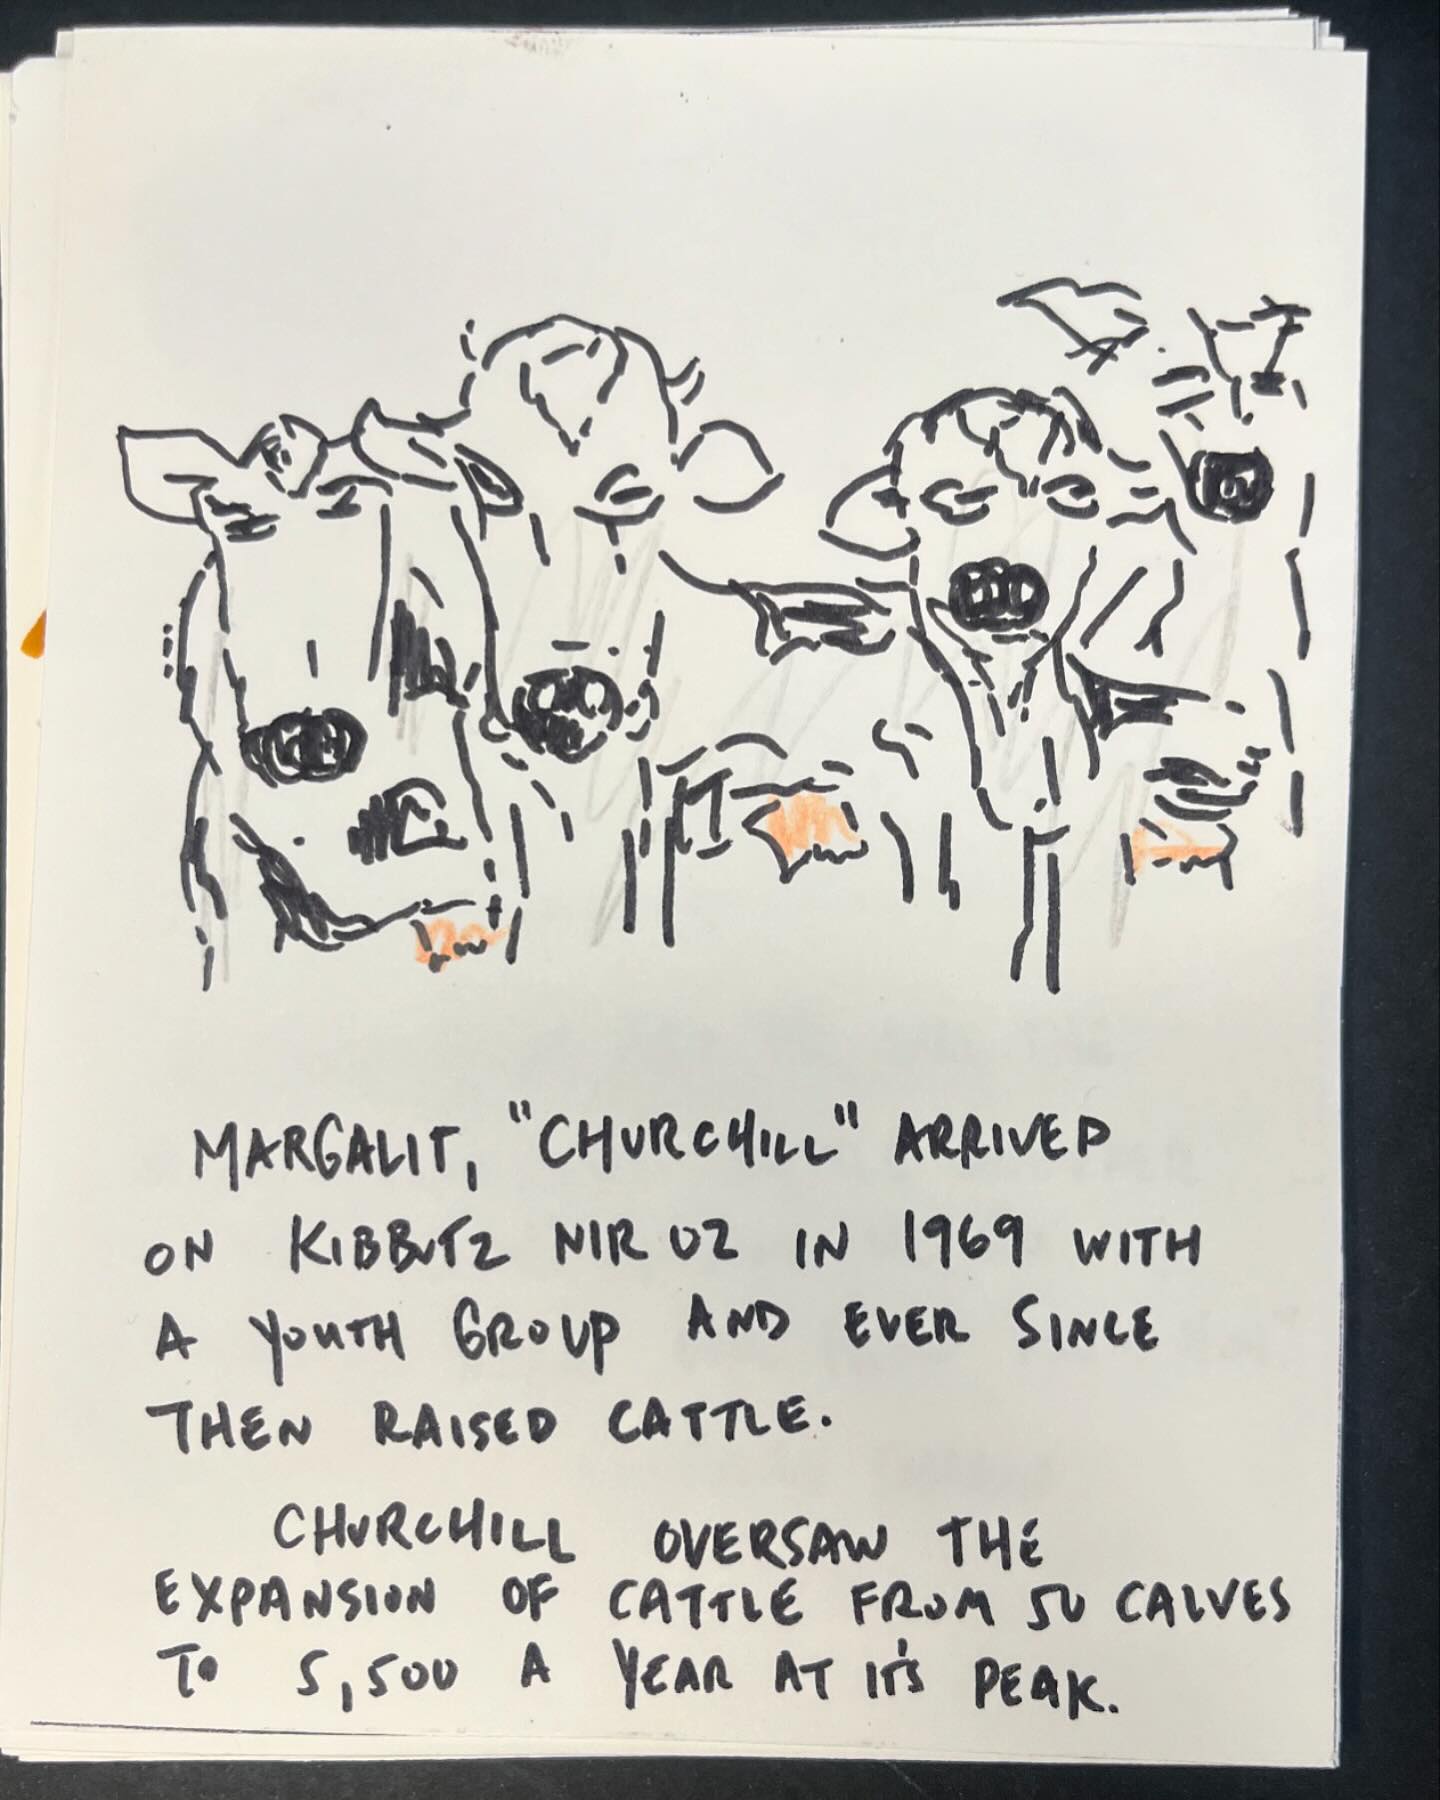 MARGALIT, "CHURCHILL" ARRIVED
ON KIBBUTZ NIR OZ IN 1969 WITH
A YOUTH GROUP AND EVER SINCE
THEN RAISED CATTLE.
CHURCHILL OVERSAW THE
EXPANSION OF CATTLE FROM 50 CALVES
TO 5,500 A YEAR AT IT'S PEAK.